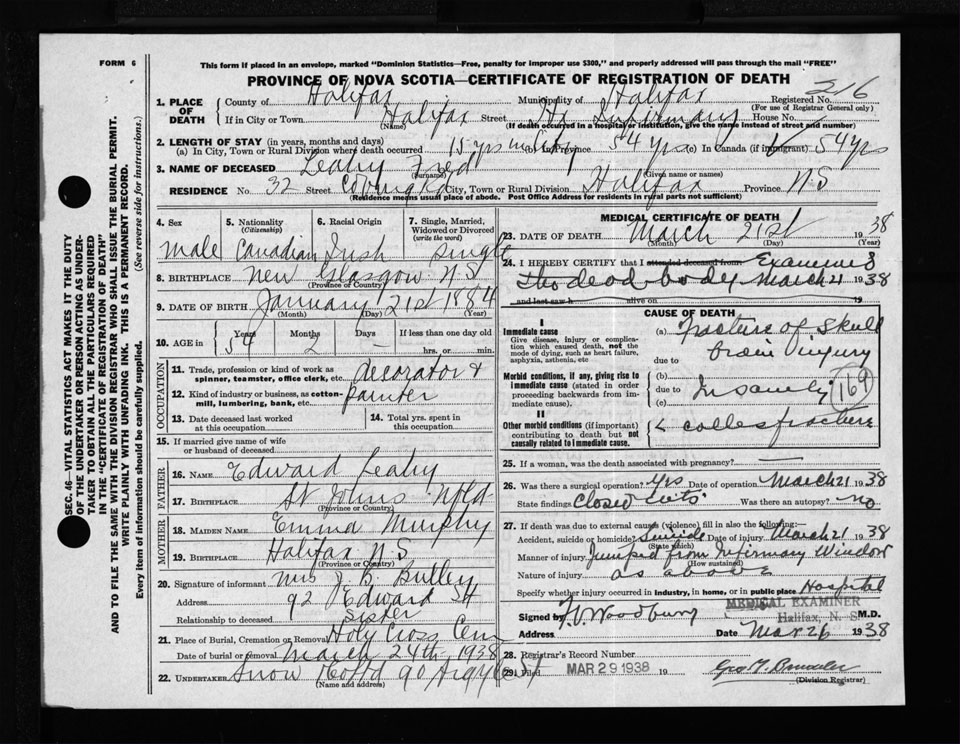 FORM 6
This form if placed in an envelope, marked "Dominion Statistics—Free, penalty for improper use $300," and properly addressed will pass through the mail "FREE"
PROVINCE OF NOVA SCOTIA—CERTIFICATE OF REGISTRATION OF DEATH
216
1. PLACE OF DEATH County of Halifax Municipality of Halifax Registered No.
(For use of Registrar General only)
If in City or Town Halifax Street Hx Infirmary House No.
(Name) (If death occurred in a hospital or institution, give the name instead of street and number)
2. LENGTH OF STAY (in years, months and days)
(a) In City, Town or Rural Division where death occurred 15 yrs (b) In Province 54 yrs (c) In Canada (if immigrant) 54 yrs
3. NAME OF DECEASED Leahy Fred
(Surname) (Given name or names)
RESIDENCE No. 32 Street Coburg Rd City, Town or Rural Division Halifax Province N.S
(Residence means usual place of abode. Post Office Address for residents in rural parts not sufficient)
4. Sex 5. Nationality (Citizenship) 6. Racial Origin 7. Single, Married, Widowed or Divorced (write the word)
male Canadian Irish single
8. BIRTHPLACE New Glasgow N.S
(Province or Country)
9. DATE OF BIRTH January 21st 1884
(Month) (Day) (Year)
10. AGE in Years Months Days If less than one day
54 2 – hrs. or min.
OCCUPATION
11. Trade, profession or kind of work as spinner, teamster, office clerk, etc. decorator &
12. Kind of industry or business, as cotton-mill, lumbering, bank, etc. painter
13. Date deceased last worked at this occupation
14. Total yrs. spent in this occupation
15. If married give name of wife or husband of deceased
FATHER
16. NAME Edward Leahy
17. BIRTHPLACE St Johns Nfld
(Province or Country)
MOTHER
18. MAIDEN NAME Emma Murphy
19. BIRTHPLACE Halifax N S
(Province or Country)
20. Signature of informant Mrs J. B. Butley
Address 92 Edward St
Relationship to deceased Sister
21. Place of Burial, Cremation or Removal Holy Cross Cem
Date of burial or removal March 24th 1938
22. UNDERTAKER Snow Co Ltd 90 Argyle St
(Name and address)
MEDICAL CERTIFICATE OF DEATH
23. DATE OF DEATH March 21st 1938
(Month) (Day) (Year)
24. I HEREBY CERTIFY that I attended deceased from Examined
the dead body March 21 1938
and last saw h alive on 19
CAUSE OF DEATH
I
Immediate cause
Give disease, injury or complication which caused death, not the mode of dying, such as heart failure, asphyxia, asthenia, etc
(a) Fracture of Skull
brain injury
due to
Morbid conditions, if any, giving rise to immediate cause (stated in order proceeding backwards from immediate cause).
(b)
due to Insanity 169
(c)
II
Other morbid conditions (if important) contributing to death but not causally related to immediate cause.
L colles fracture
25. If a woman, was the death associated with pregnancy? —
26. Was there a surgical operation? yes Date of operation March 21 1938
State findings Closed cuts Was there an autopsy? no
27. If death was due to external causes (violence) fill in also the following:—
Accident, suicide or homicide? Suicide Date of injury March 21 1938
(State which)
Manner of injury Jumped from Infirmary Window
(How sustained)
Nature of injury as above
Specify whether injury occurred in industry, in home, or in public place Hospital
MEDICAL EXAMINER
Halifax, N. S.
Signed by Woodbury M.D.
Address Date Mar 26 1938
28. Registrar's Record Number
29. Filed MAR 29 1938 19
(Division Registrar)
SEC. 46—VITAL STATISTICS ACT MAKES IT THE DUTY
OF THE UNDERTAKER OR PERSON ACTING AS UNDERTAKER TO OBTAIN ALL THE PARTICULARS REQUIRED
IN THE "CERTIFICATE OF REGISTRATION OF DEATH"
AND TO FILE THE SAME WITH THE DIVISION REGISTRAR WHO SHALL ISSUE THE BURIAL PERMIT.
WRITE PLAINLY WITH UNFADING INK. THIS IS A PERMANENT RECORD.
Every item of information should be carefully supplied. (See reverse side for instructions.)